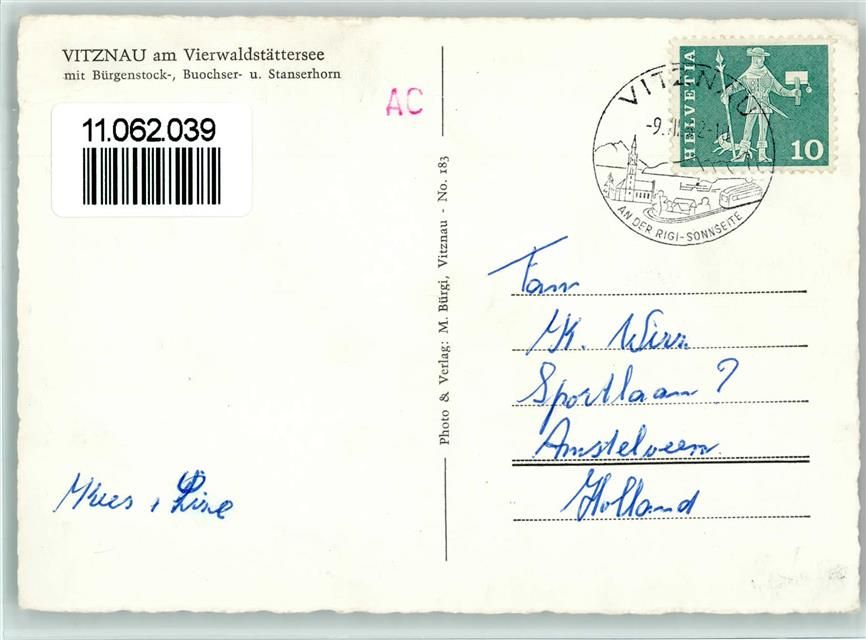 VITZNAU am Vierwaldstättersee
mit Bürgenstock-, Buochser- u. Stanserhorn
AC
11.062.039
Photo & Verlag: M. Bürgi, Vitznau - No. 183
VITZNAU
AN DER RIGI-SONNSEITE
HELVETIA
10
Fam
K. Wirr
Sportlaan 7
Amstelveen
Holland
Kees , Line